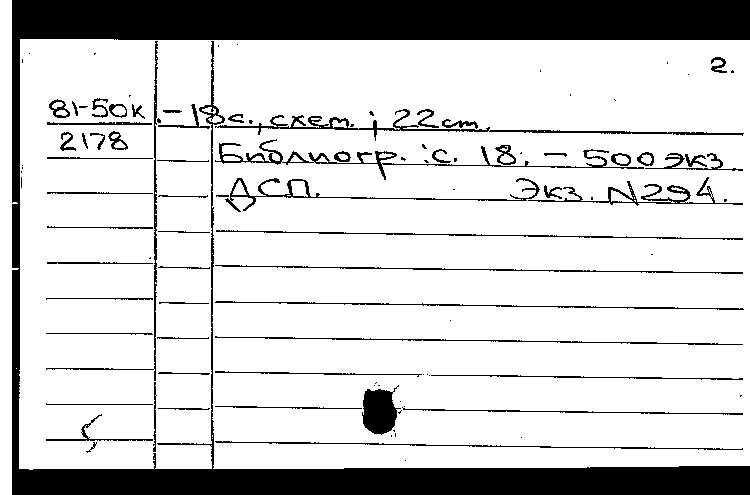 2.
81-50к .- 18с., схем. ; 22 cm.
2178 Библиогр. :с. 18. - 500 экз
ДСП. Экз. N294.